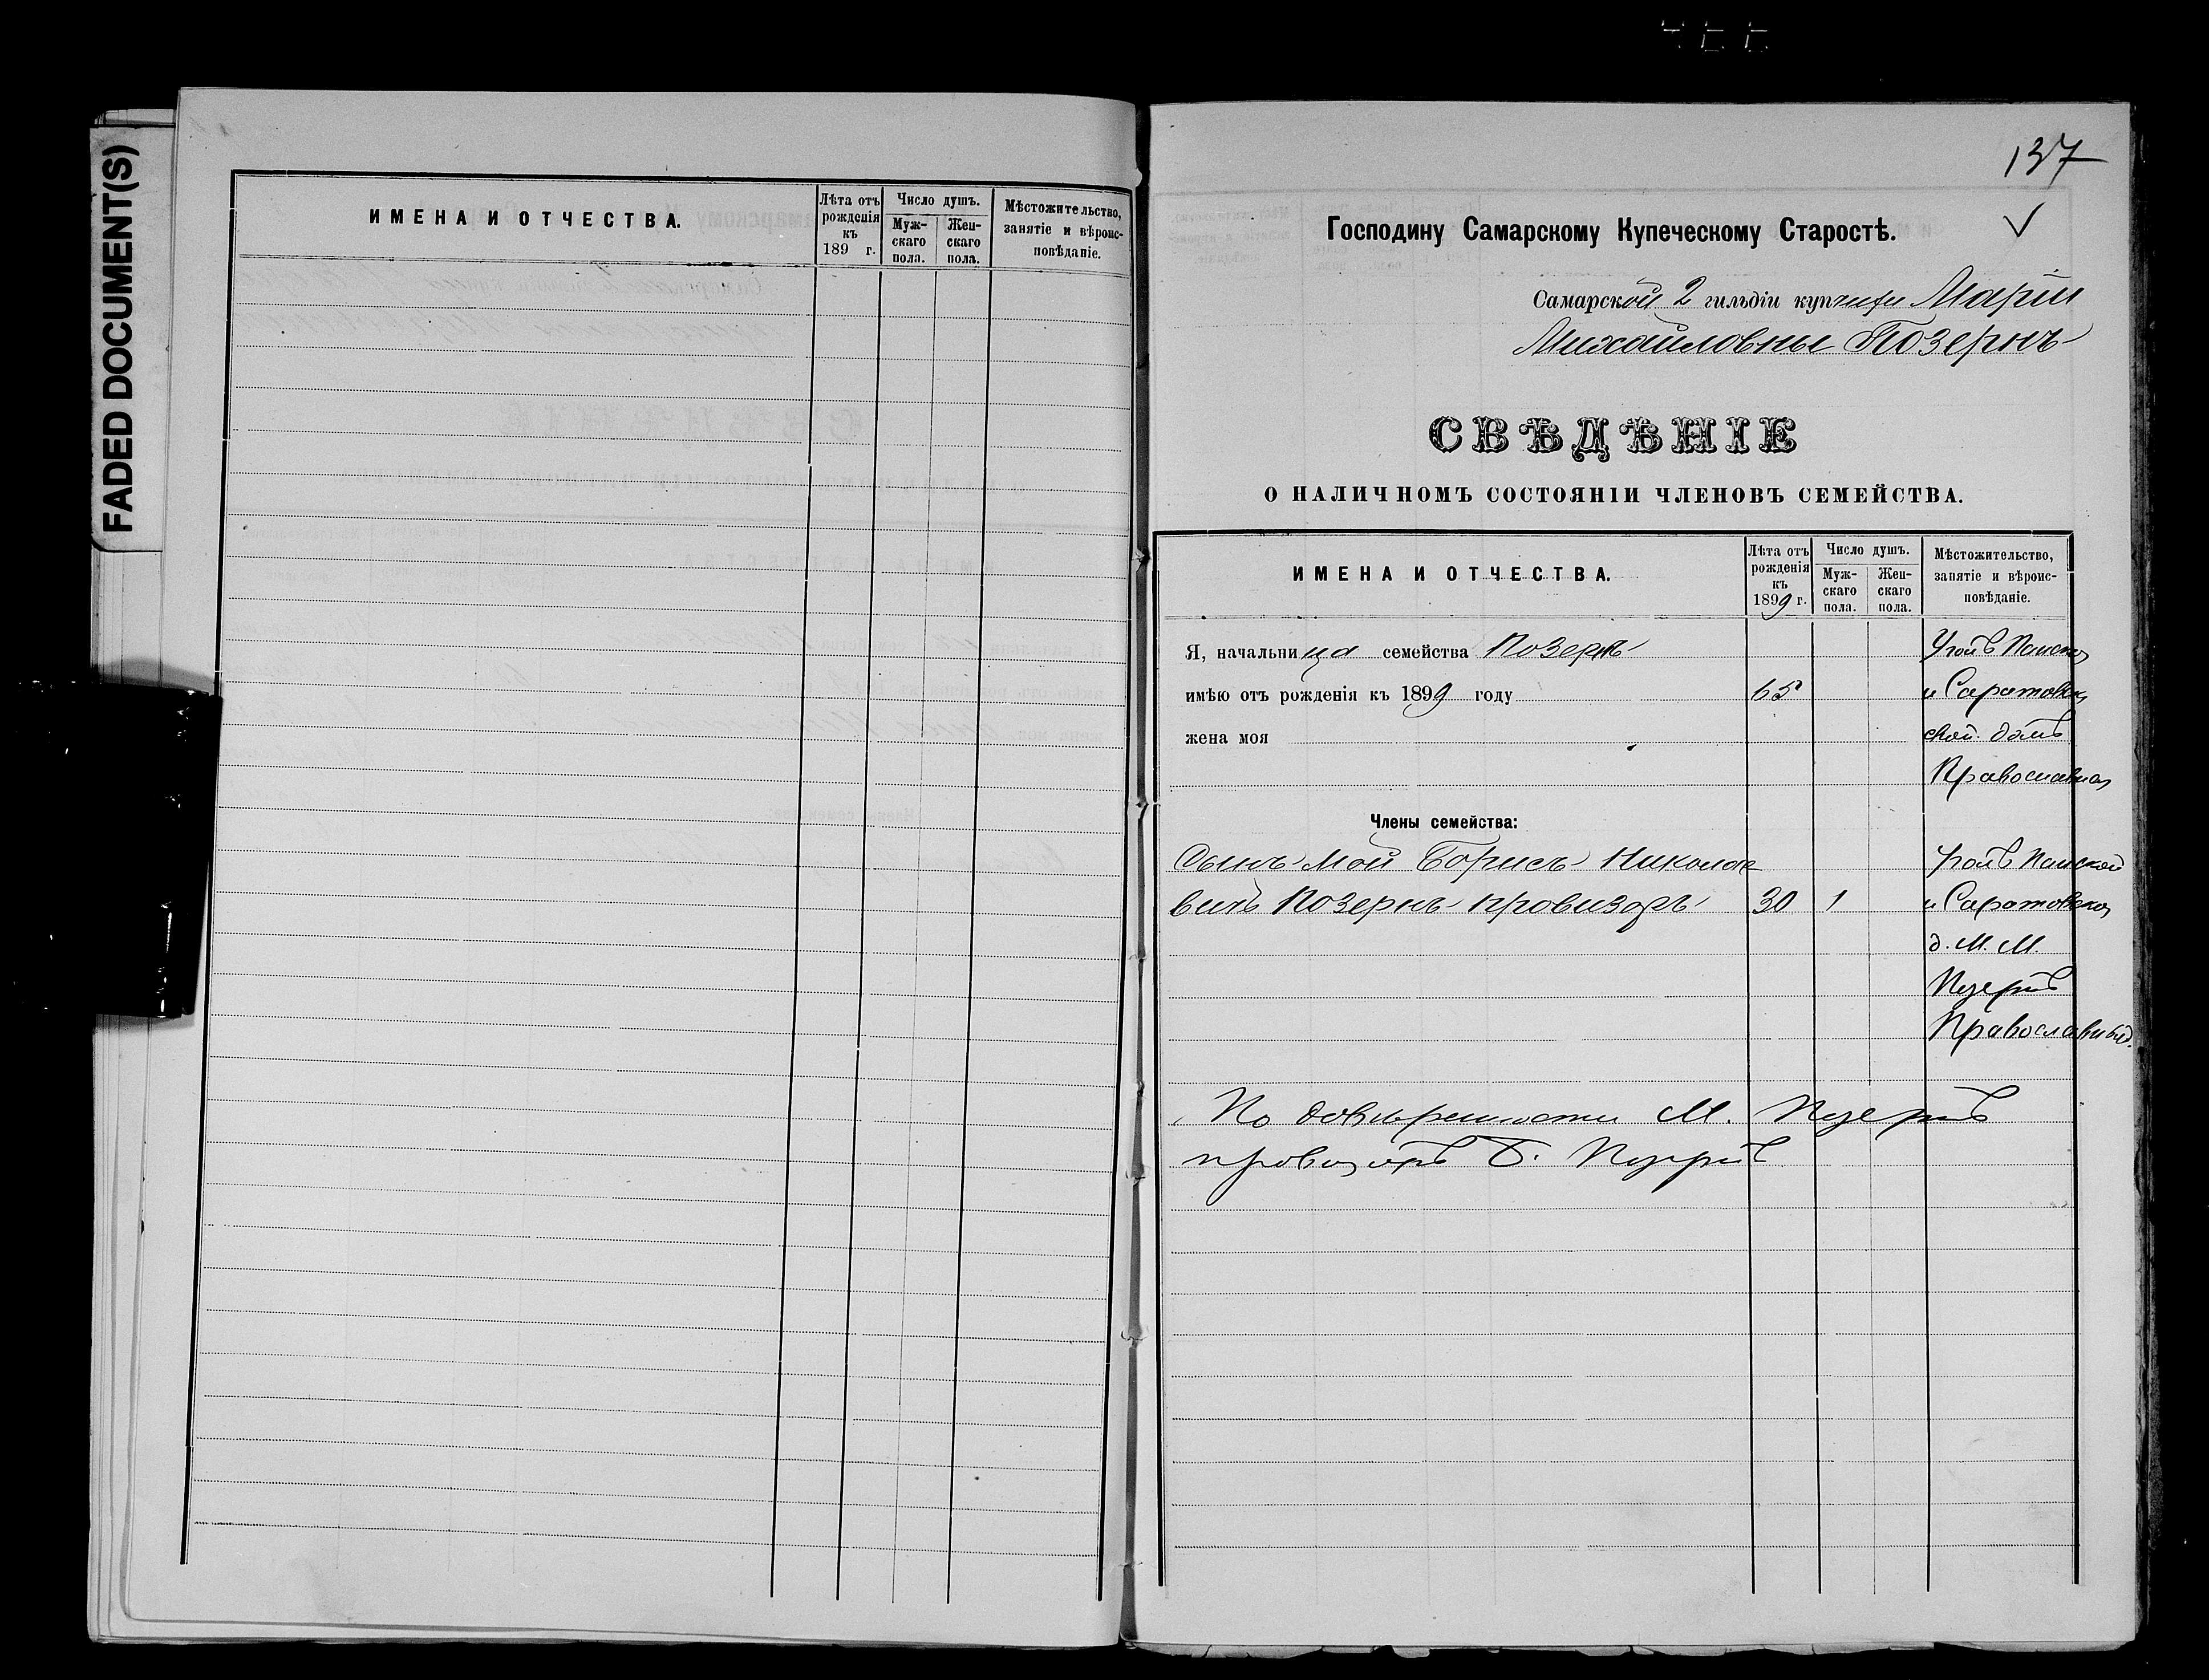 FADED DOCUMENT(S)
ИМЕНА И ОТЧЕСТВА.
Лѣта отъ рожденія къ 189 г.
Число душъ.
Мужскаго пола.
Женскаго пола.
Мѣстожительство, занятіе и вѣроисповѣданіе.
137
Господину Самарскому Купеческому Старостѣ.
Самарской 2 гильдіи купчихи Маріи
Михайловны Позернъ
СВѢДѢНІЕ
О НАЛИЧНОМЪ СОСТОЯНІИ ЧЛЕНОВЪ СЕМЕЙСТВА.
ИМЕНА И ОТЧЕСТВА.
Лѣта отъ рожденія къ 1899 г.
Число душъ.
Мужскаго пола.
Женскаго пола.
Мѣстожительство, занятіе и вѣроисповѣданіе.
Я, начальница семейства Позернъ Уголъ Панской
имѣю отъ рожденія къ 1899 году 65 и Саратов
жена моя ской домъ
Православная
Члены семейства:
Сынъ мой Борисъ Николае Уголъ Панской
вичъ Позернъ провизоръ 30 1 и Саратовской
д. М. М.
Позернъ
Православный.
По довѣренности М. Позернъ
провизоръ Б. Позернъ